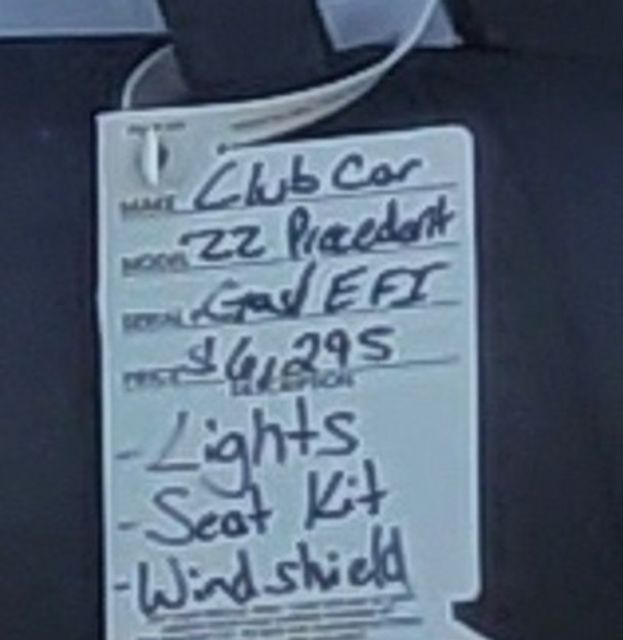 MAKE Club Car
MODEL 22 Precedent
SERIAL Gas/EFI
PRICE $6,295
DESCRIPTION
-Lights
-Seat Kit
-Windshield